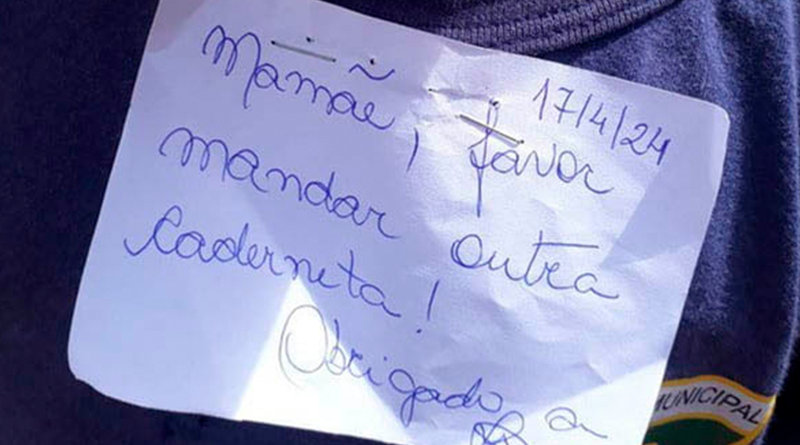 17/4/24
Mamãe, favor
mandar outra
caderneta!
Obrigado,
MUNICIPAL